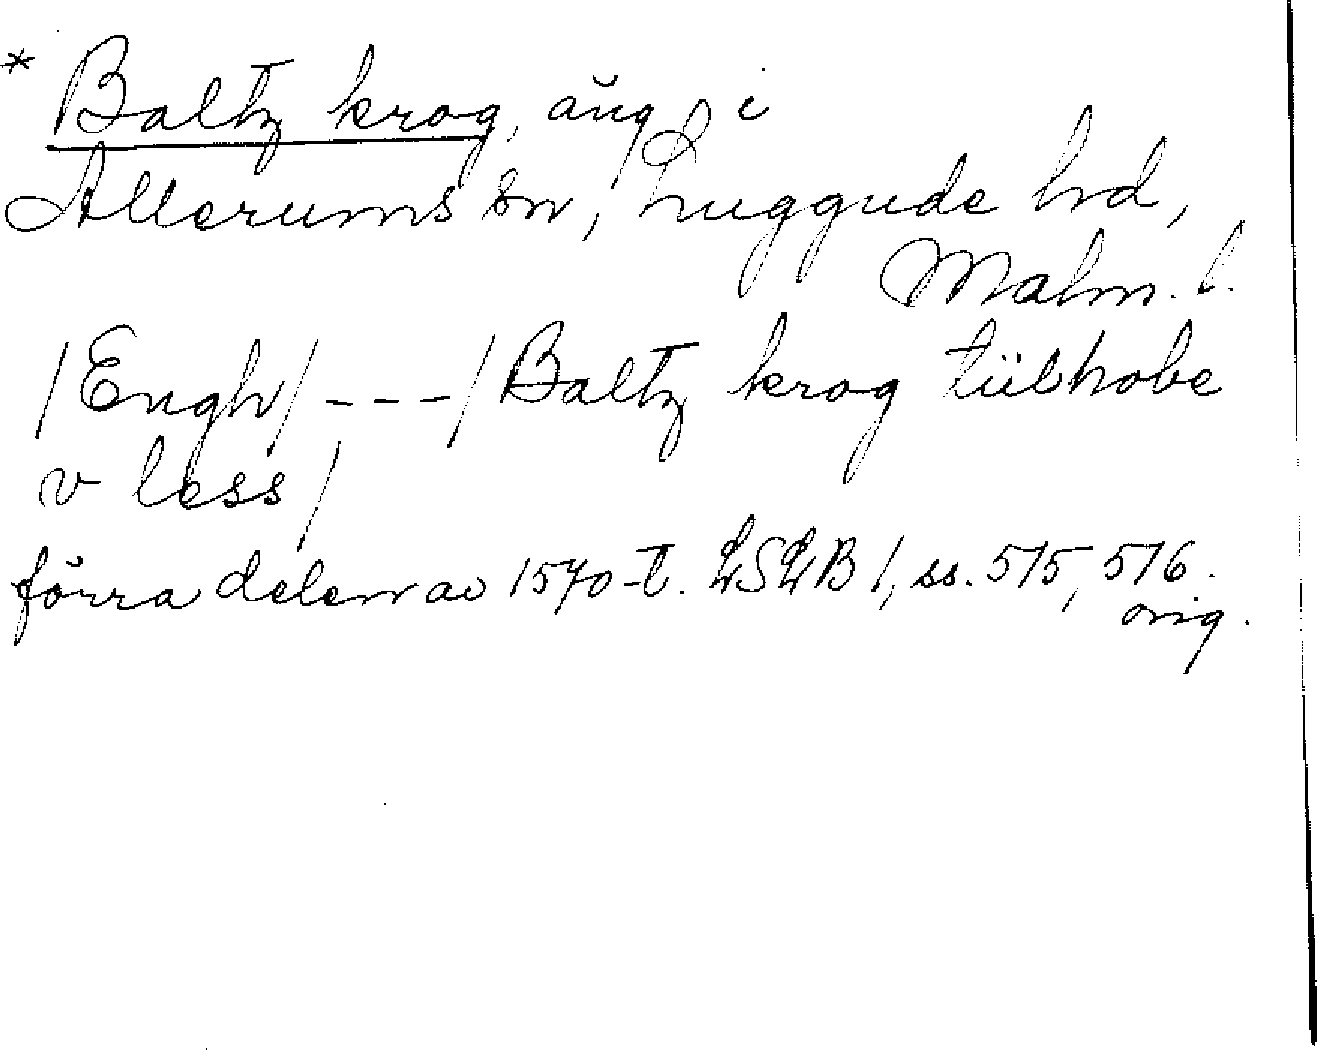 * Baltz krog, äng i
Allerums sn, Luggude hd,
Malm. l.
/Engh/ --- / Baltz krog tillhobe
v less /
förra delen av 1570-t. LSLB 1, ss. 515, 516.
orig.